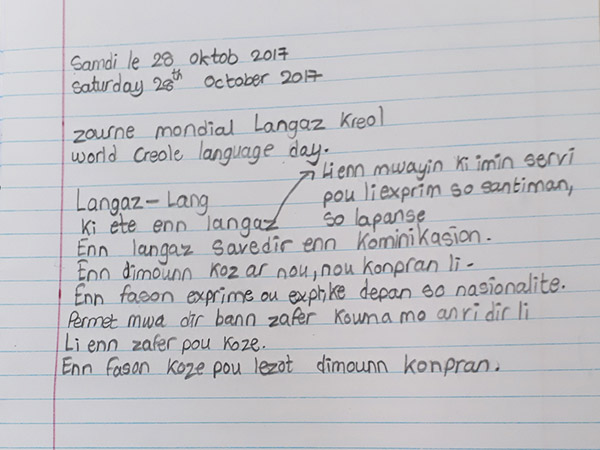 Samdi le 28 oktob 2017
Saturday 28th October 2017
zourne mondial Langaz Kreol
world Creole language day.
Li enn mwayin ki imin servi
pou li exprim so santiman,
so lapanse
Langaz - Lang
Ki ete enn langaz
Enn langaz savedir enn kominikasion.
Enn dimounn koz ar nou, nou konpran li.
Enn fason exprime ou explike depan so nasionalite.
Permet mwa dir bann zafer kouma mo anvi dir li
Li enn zafer pou koze.
Enn fason koze pou lezot dimounn konpran.